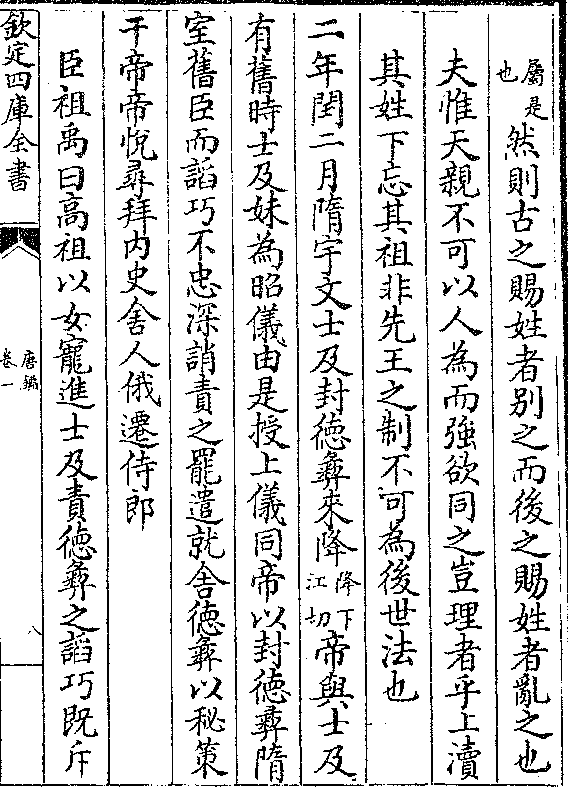 屬是也然則古之賜姓者別之而後之賜姓者亂之也
夫惟天親不可以人為而強欲同之豈理者乎上瀆
其姓下忘其祖非先王之制不可為後世法也
二年閏二月隋宇文士及封徳彝來降降下江切帝與士及
有舊時士及妹為昭儀由是授上儀同帝以封徳彝隋
室舊臣而謟巧不忠深誚責之罷遣就舍徳彝以秘策
干帝帝恱尋拜内史舍人俄遷侍郎
臣祖禹曰高祖以女寵進士及責徳彝之謟巧既斥
欽定四庫全書
唐鑑
卷一
八